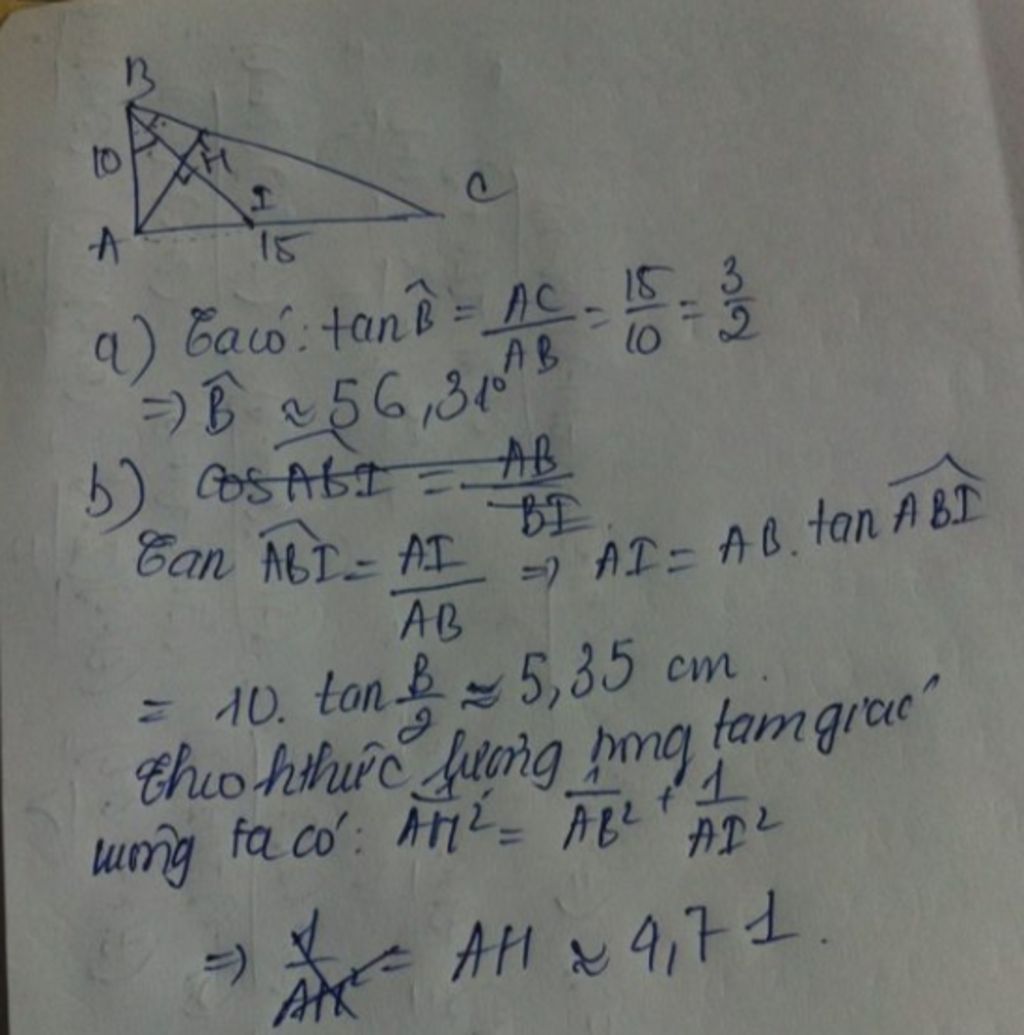 B
10
H
C
A
I
15
a) Ta có: tan B̂ = AC/AB = 15/10 = 3/2
=> B̂ ≈ 56,31°
b) cos ABI = AB/BI
Tan ABI = AI/AB => AI = AB. tan ABI
= 10. tan B/2 ≈ 5,35 cm.
Theo hthức lượng trong tam giác
vuông ta có: 1/AH² = 1/AB² + 1/AI²
=> 1/AH² = AH ≈ 4,71.